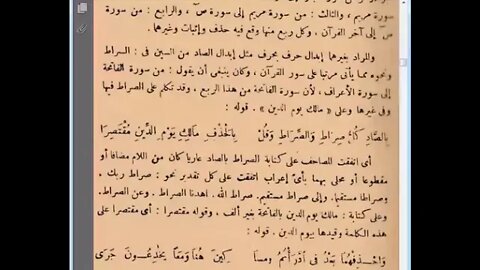 سورة مريم ، والثالث : من سورة مريم إلى سورة صٓ ، والرابع : من سورة
صٓ إلى آخر القرآن ، وكل ربع منها وقع فيه حذف وإثبات وغيرها .
والمراد بغيرها إبدال حرف بحرف مثل إبدال الصاد من السين فى : السراط
ونحوه مما يأتى مرتبا على سور القرآن ، وكان ينبغى أن يقول : من سورة الفاتحة
إلى سورة الأعراف ، لأن سورة الفاتحة من هذا الربع . وقد تكلم على الصراط فيها
وفى غيرها وعلى « مالك يوم الدين » . قوله :
بِالصَّادِ كُلُّ صِرَاطٍ وَالصِّرَاطِ وَقُلْ بِالْحَذْفِ مَالِكِ يَوْمِ الدِّينِ مُقْتَصِرَا
أى اتفقت المصاحف على كتابة الصراط بالصاد عاريا كان من اللام مضافا أو
مقطوعا أو محلى بهما بأىّ إعراب اتفقت على كل تقدير نحو : صراط ربك .
وصراطا مستقيما . وإلى صراط مستقيم . صراط الله . اهدنا الصراط . وعن الصراط .
وعلى كتابة : مالك يوم الدين بالفاتحة بغير ألف ، وقوله مقتصرا : أى مقتصرا على
هذه الكلمة وقيدها بيوم الدين . قوله :
وَاحْذِفْهُمَا بَعْدُ فِى ادَّرَأْتُمْ وَمَسَا كِينَ هُنَا وَمَعًا يُخَادِعُونَ جَرَى